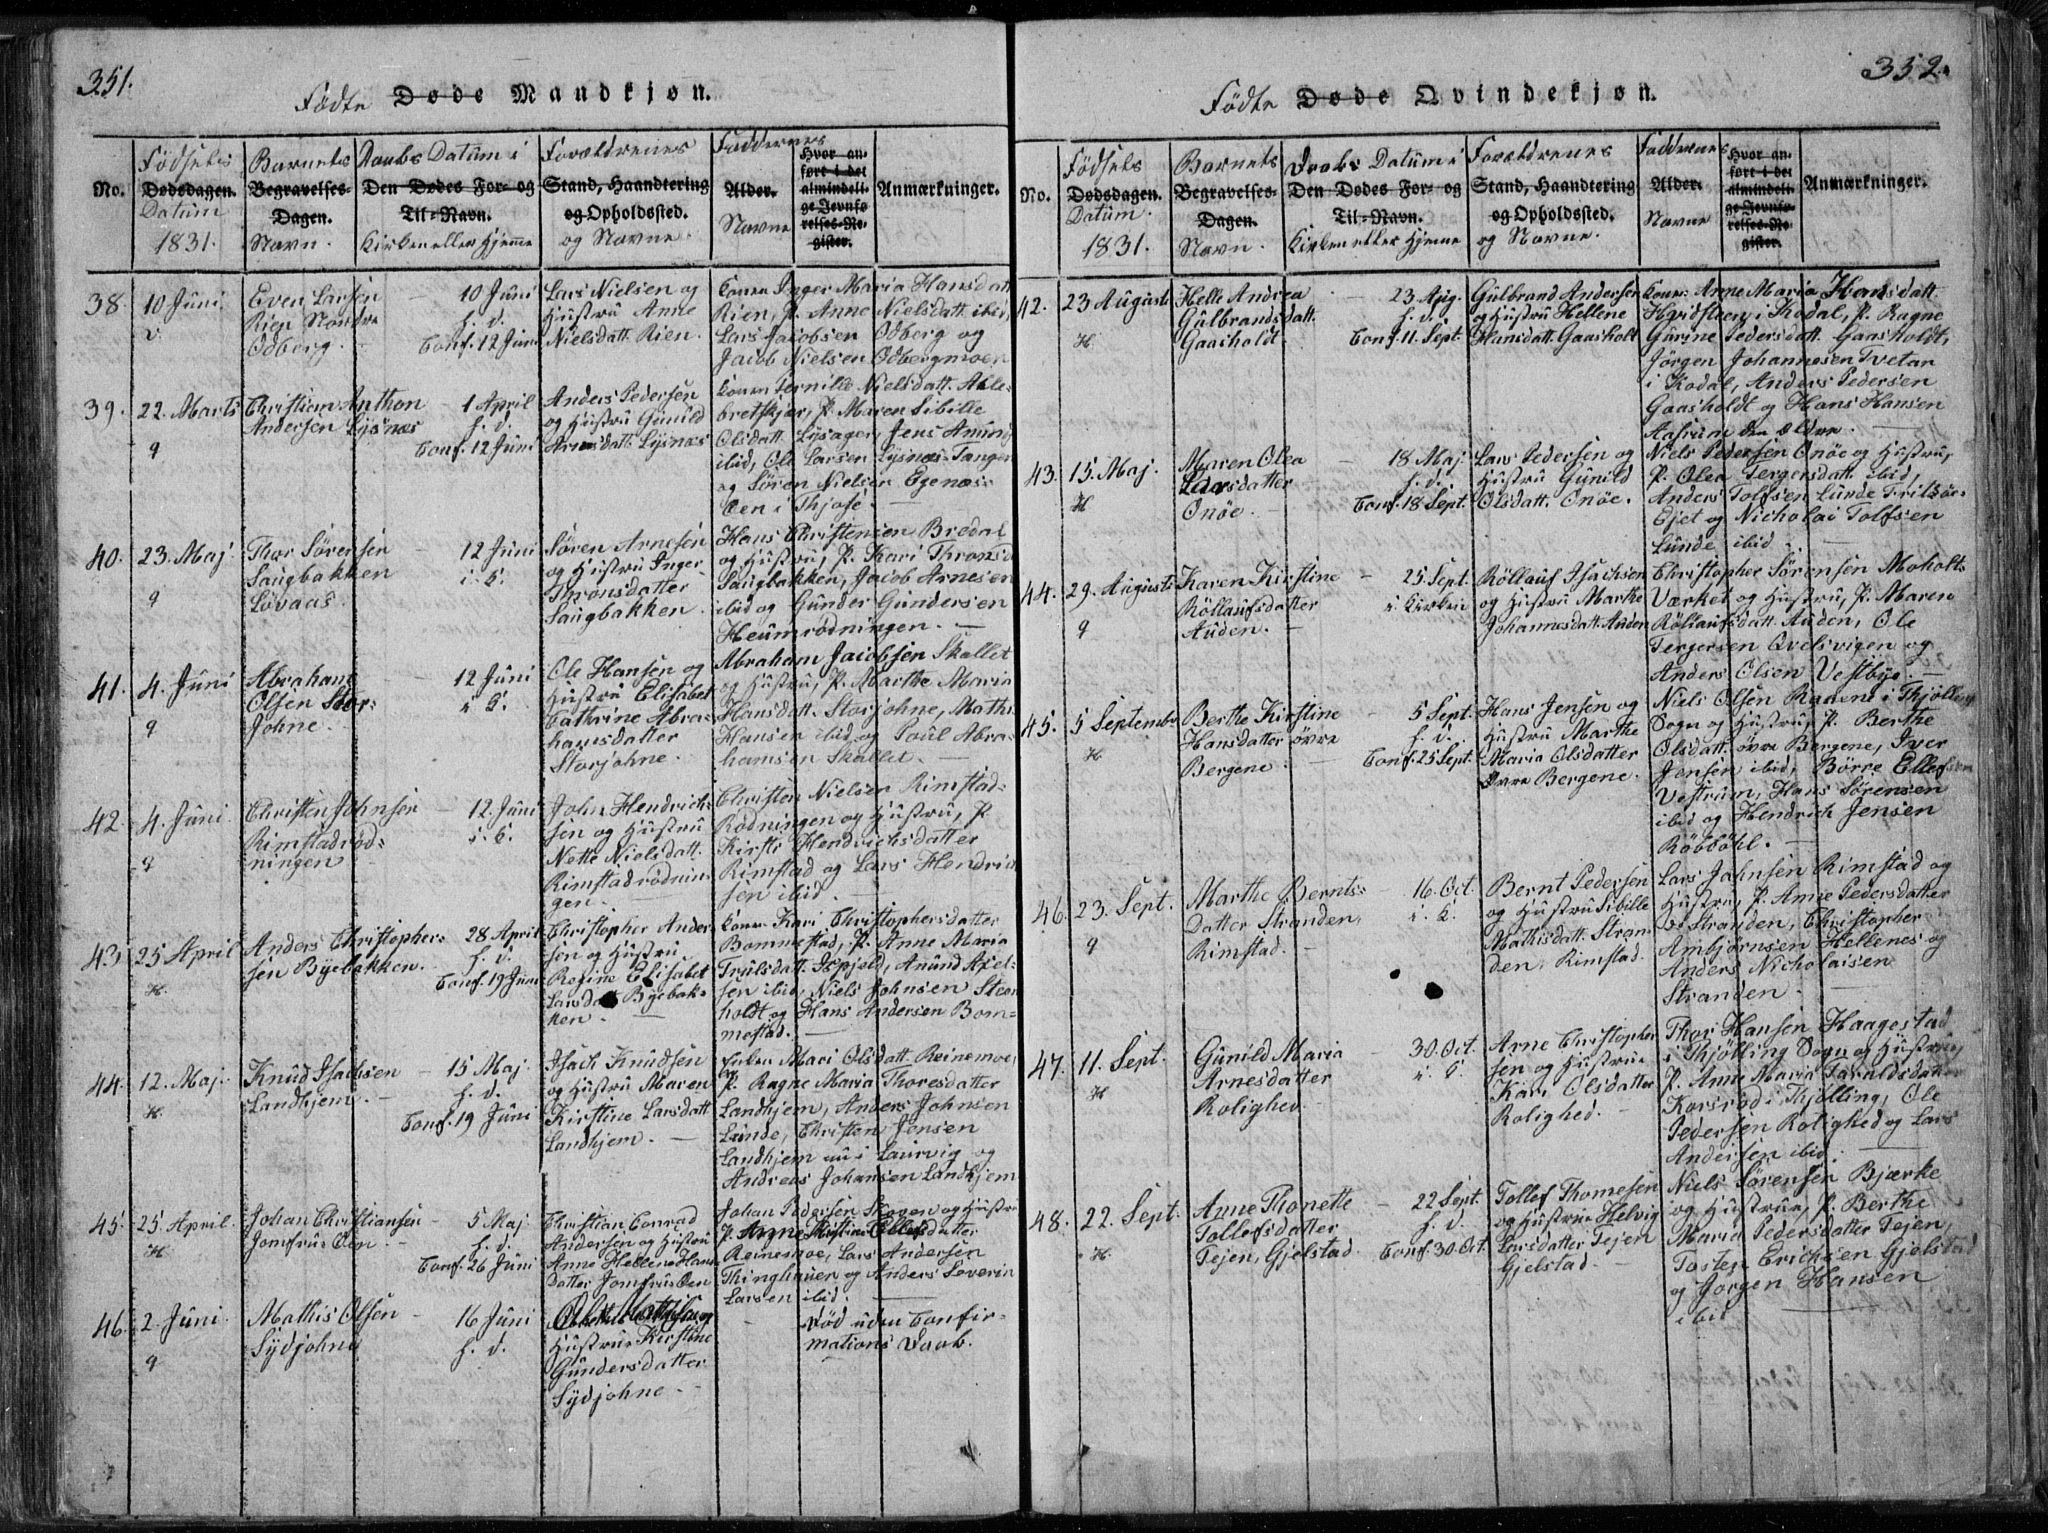 351.
Födte Døde Mandkjøn.
No.
Födsels
Dødsdagen.
Datum
1831.
Barnets
Begravelses-
Dagen.
Navn.
Daabs Datum i
Den Dødes For- og
Til-Navn.
Kirken eller Hjemme
Forældrenes
Stand, Haandtering
og Opholdssted.
og Navne.
Faddernes
Alder.
Navne
Hvor an-
ført i det
almindeli-
ge Jevnfø-
relses-Re-
gister.
Anmærkninger.
38.
10 Juni
Even Larsen
Rien Nordre
Odberg.
10 Juni
h. d.
Conf. 12 Juni
Lars Nielsen og
Hustru Anne
Nielsdatt. Rien.
Konen Inger Maria Hansdatt
Rien, P. Anne Nielsdatt. ibid,
Lars Jacobsen Odberg og
Jacob Nielsen Odbergmoen
39.
22. Marts
9
Christian Anthon
Andersen Lysnæs
1 April
h. d.
Conf. 12 Juni
Anders Pedersen
og Hustru Gunild
Arnesdatt. Lysnæs
Konen Pernille Nielsdatt. Able-
bretskjær, P. Maren Sibille
Olsdatt. Lysager, Jens Amund
ibid, Ole Larsen Lysnæs-Tangen
og Sören Nielsen Egenæs-
Öen i Thjose.
40.
23. Maj
9
Thor Sörensen
Saugbakken
Lövaas.
12 Juni
i. K.
Sören Arnesen
og Hustru Inger
Thronsdatter
Saugbakken.
Hans Christensen Bredal
og Hustru, P. Kari Thronsd
Saugbakken, Jacob Arnesen
ibid og Gunder Gundersen
Heumrödningen.
41.
4. Juni
9
Abraham
Olsen Stor-
Johne.
12 Juni
i K.
Ole Hansen og
Hustru Elisabet
Cathrine Abra-
hamsdatter
Storjohne.
Abraham Jacobsen Skallet
og Hustru, P. Marthe Maria
Hansdatt. Storjohne, Mathi
Hansen ibid og Poul Abra-
hamsen Skallet.
42.
4. Juni
9
Christen Johnsen
Rimstadröd-
ningen
12. Juni
i. K.
John Hendrich-
sen og Hustru
Nette Nielsdatt.
Rimstadrödnin-
gen.
Christen Nielsen Rimstad-
Rödningen og Hustru, P.
Kirsti Hendrichsdatter
Rimstad og Lars Hendrich
sen ibid.
43.
25 April
H.
Anders Christopher-
sen Byebakken.
28 April
h. d.
Conf. 19 Juni
Christopher Ander-
sen og Hustru
Regine Elisabet
Larsdatt Byebak-
ken.
Konen Kari Christophersdatter
Bommestad, P. Anne Maria
Trulsdatt. Ispjeld, Anund Axel-
sen ibid, Niels Johnsen Steen
holdt og Hans Andersen Bom-
mestad.
44.
12. Maj.
H.
Knud Isachsen
Landhjem.
15 Maj.
h. d.
Conf. 19 Juni
Isach Knudsen
og Hustru Maren
Kirstine Larsdatt
Landhjem.
Enken Mari Olsdatt. Reinemoe,
P. Ragne Maria Thoresdatter
Landhjem, Anders Johnsen
Lunde, Christen Jensen
Landhjem nu i Laurvig og
Andreas Johansen Landhjem
45
25 April.
H.
Johan Christiansen
Jomfrue Öen
5 Maj
h. d.
Conf. 26 Juni
Christian Conrad
Andersen og Hustru
Anne Hellene Hans
datter Jomfrue Öen
Johan Pedersen Skoven og Hustru
P. Anne Kirstine Ellefsdatter
Reinemoe, Lars Andersen
Thinghauen og Anders Severin
Larsen ibid.
46.
2. Juni.
9
Mathis Olsen
Sydjohne
16 Juni
h. d.
Ole Mathisen og
Hustrue Kirstine
Gundersdatter
Sydjohne.
Död uden Confir-
mations Daab.
352.
Födte Døde Qvindekjøn.
No.
Födsels
Dødsdagen.
Datum.
1831.
Barnets
Begravelses-
Dagen.
Navn.
Daabs Datum i
Den Dødes For- og
Til-Navn.
Kirken eller Hjemme
Forældrenes
Stand, Haandtering
og Opholdssted.
og Navne.
Faddernes
Alder.
Navne
Hvor an-
ført i det
almindeli-
ge Jevnfø-
relses-Re-
gister.
Anmærkninger.
42.
23 August
H.
Helle Andrea
Gulbrandsdatt.
Gaasholdt
23 Aug.
h. d.
Conf. 11. Sept.
Gulbrand Andersen
og Hustru Hellene
Hansdatt. Gaasholt
Konen Anne Maria Hansdatt.
Hvidsteen i Kodal, P. Ragne
Gurine Pedersdatt. Gaasholdt,
Jörgen Johannesen Tvetan
i Kodal, Anders Pedersen
Gaasholdt og Hans Hansen
Aasrum den ældre.
43.
15. Maj.
H
Maren Olea
Larsdatter
Onöe.
18 Maj
h. d.
Conf. 18 Sept.
Lars Pedersen og
Hustru Gunild
Olsdatt. Onöe.
Niels Pedersen Onöe og Hustru,
P. Olea Tergersdatt. ibid,
Anders Tolfsen Lunde Fritzöe-
Ejet og Nicholai Tolfsen
Lunde ibid.
44.
29. August
9
Karen Kirstine
Röllaufsdatter
Auden.
25. Sept.
i. Kirken
Röllauf Isachsen
og Hustru Marthe
Johannesdatt. Auden
Christopher Sörensen Moholt-
Værket og Hustru, P. Maren
Röllaufsdatt. Auden, Ole
Tergersen Qvelsvigen og
Anders Olsen Vestbye.
45.
5 September
H
Berthe Kirstine
Hansdatter övre
Bergene.
5 Sept.
h. d.
Conf. 25 Sept.
Hans Jensen og
Hustru Marthe
Maria Olsdatter
övre Bergene.
Niels Olsen Rauene i Thjölling
Sogn og Hustru, P. Berthe
Olsdatt. övre Bergene, Iver
Jensen ibid, Börre Ellefsen
Vestrum, Hans Sörensen
ibid og Hendrich Jensen
Röbböhl.
46.
23. Sept.
9
Marthe Bernts-
Datter Stranden
Rimstad.
16. Oct
i. K.
Bernt Pedersen
og Hustru Sibille
Mathisdatt. Stran-
den, Rimstad.
Lars Johnsen Rimstad og
Hustru, P. Anne Pedersdatter
Stranden, Christopher
Ambjörnsen Hellenes og
Anders Nicholaisen
Stranden.
47.
11. Sept.
H
Gunild Maria
Arnesdatter
Rolighed
30. Oct.
i. K.
Arne Christopher
sen og Hustrue
Kari Olsdatter
Rolighed.
Thor Hansen Haagestad
i Thjölling Sogn og Hustru,
P. Anne Maria Haraldsdatter
Korsröd i Thjölling, Ole
Pedersen Rolighed og Lars
Andersen ibid.
48.
22. Sept.
H.
Anne Thonette
Tollefsdatter
Tejen, Gjelstad
22 Sept.
h. d.
Conf. 30 Oct.
Tollef Thomesen
og Hustrue Helvig
Larsdatter Tejen
Gjelstad.
Niels Sörensen Bjærke
og Hustrue, P. Berthe
Maria Pedersdatter Tejen,
Tosten Erichsen Gjelstad
og Jörgen Hansen
ibid